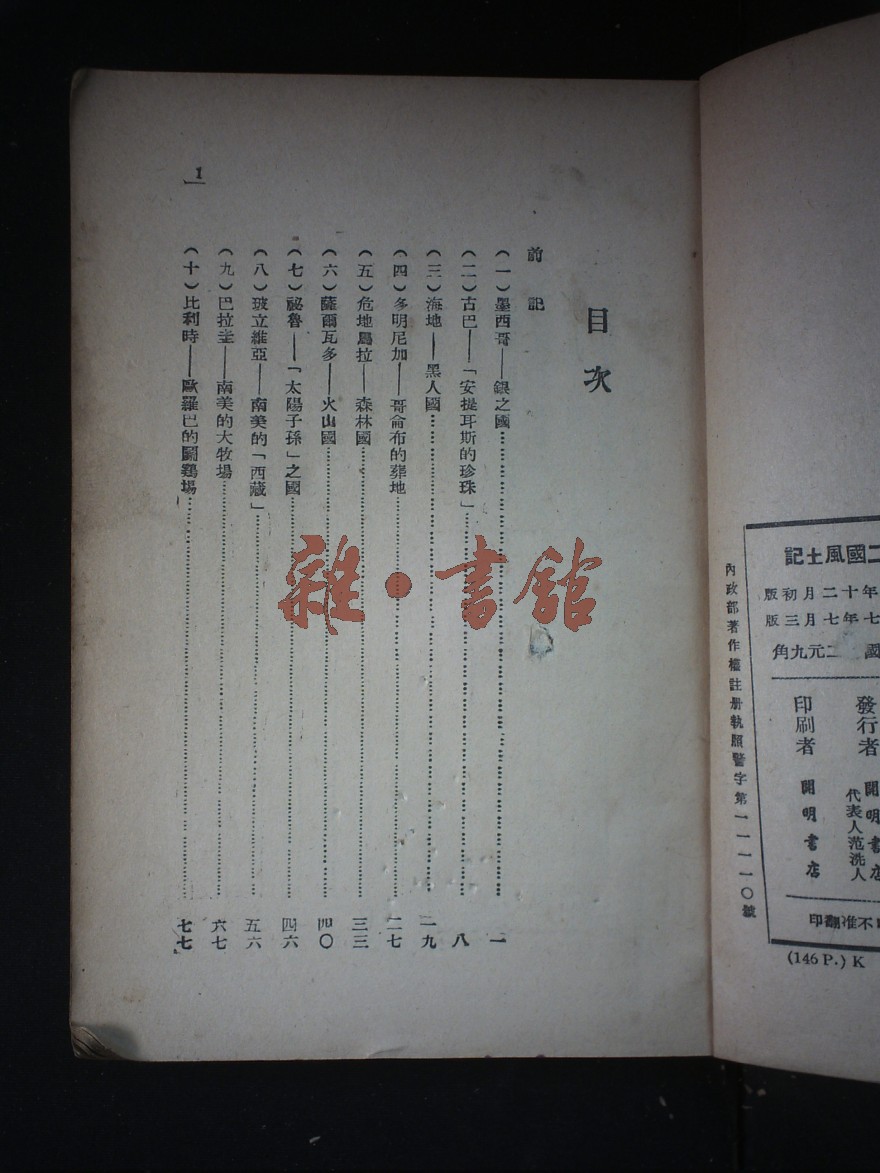 目次
前記
（一）墨西哥——銀之國……一
（二）古巴——「安提耳斯的珍珠」……八
（三）海地——黑人國……一九
（四）多明尼加——哥侖布的葬地……二七
（五）危地馬拉——森林國……三三
（六）薩爾瓦多——火山國……四〇
（七）祕魯——「太陽子孫」之國……四六
（八）玻立維亞——南美的「西藏」……五六
（九）巴拉圭——南美的大牧場……六七
（十）比利時——歐羅巴的鬭鷄場……七七
1
雜·書館
二國風土記
年十二月初版
七年七月三版
國 二元九角
發行者 開明書店
代表人范洗人
印刷者 開明書店
不准翻印
內政部著作權註册執照警字第一一一一〇號
(146 P.) K